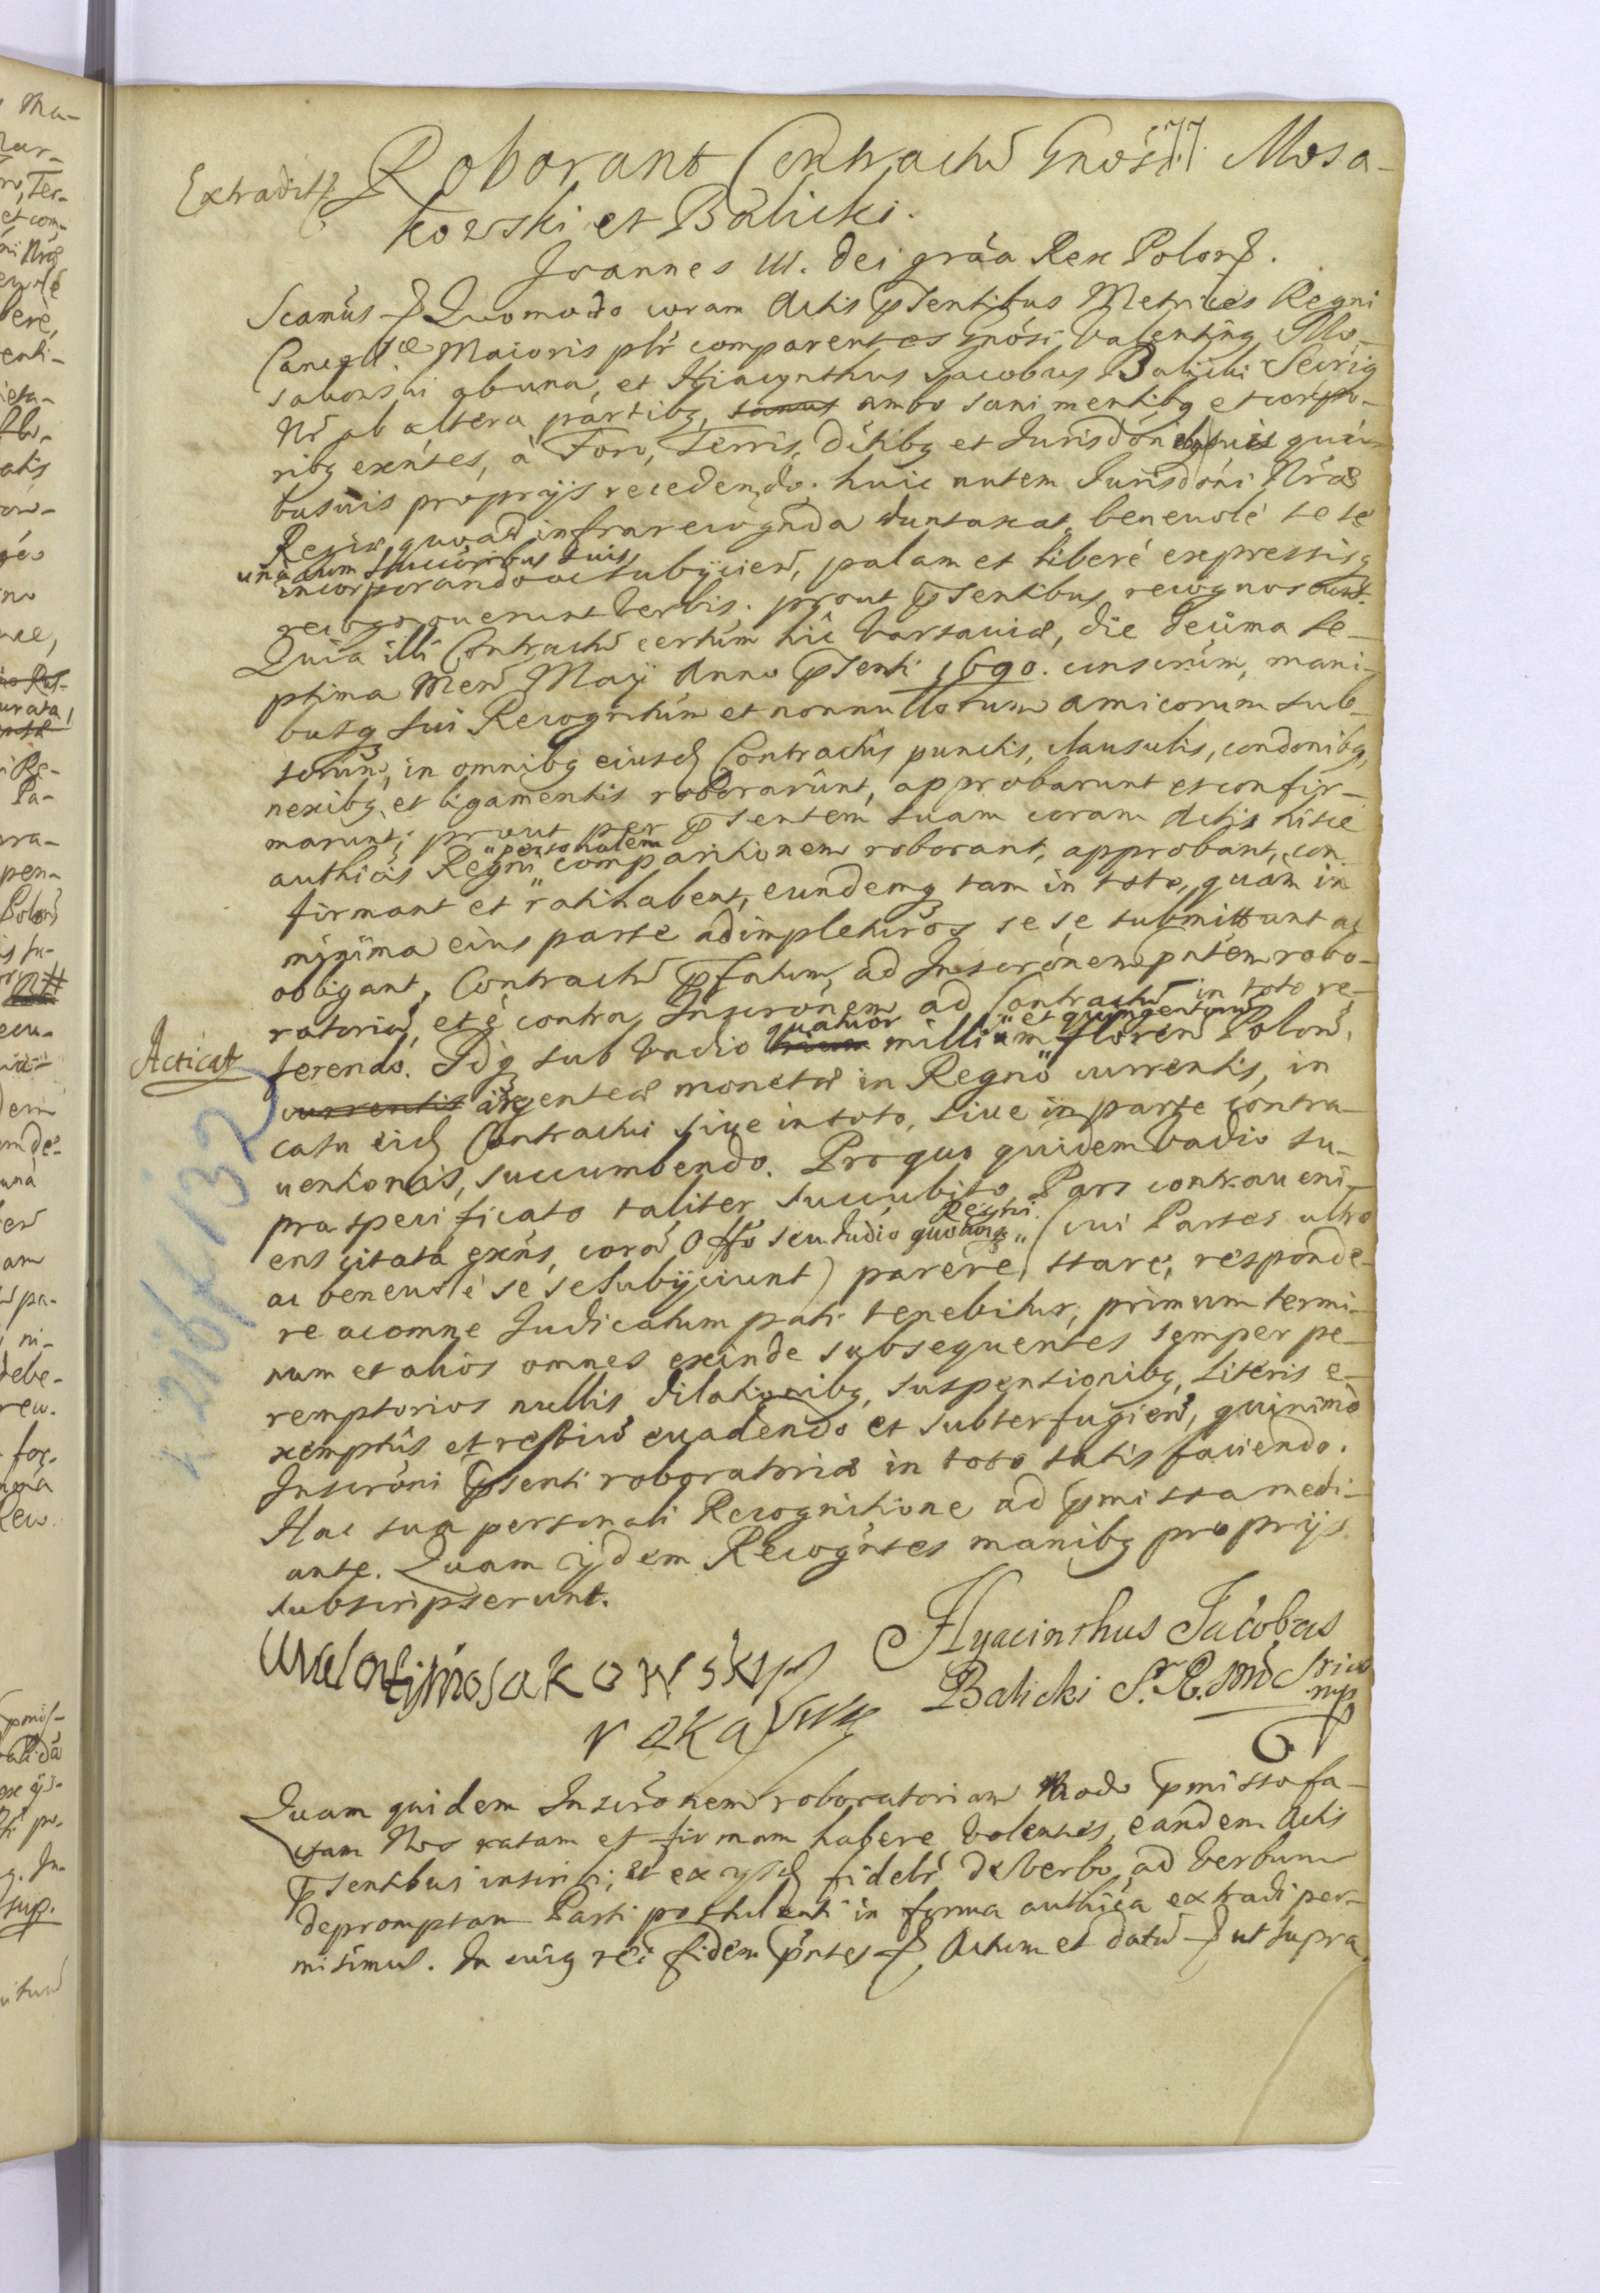 77.
Extradit
Roborant Contractũ Gnosi Mosa-
kowski et Balicki.
Joannes III. Dei grãa Rex Polon
Scamus Quomodo coram Actis pͬsentibus Metrices Regni
Cancellæ Maioris plr̃ comparentes Gnosi Valentinꝗ Mo-
sakowski ab una, et Hiacynthus Jacobus Balicki Secriꝗ
Nr̃ ab altera partibꝗ, ambo sani mentibꝗ et corpo-
ribꝗ exñtes, à Foro, Terris, dctibꝗ et Jurisdõni quui-
busuis proprijs recedendo. huic autem Jurisdõni Nr̃æ
Regiæ quoad infrarecognda duntaxat, beneuolé se se
unà cum Succoribus suis
incorporando ac subijcien, palam et liberé expressisꝗ
recognouerunt verbis. prout pͬsentibus recognoscunt.
Quia illi Contractũ certum hic Varsauiæ, die decima se-
ptima Men Maij Anno pͬsenti 1690. conscriũm, mani-
busꝗ sui Recognitum et nonnullorum amicorum sub-
scrium, in omnibꝗ eiusd Contractus punctis, clausulis, condonibꝗ,
nexibꝗ, et ligamentis roborarunt, approbarunt et confir-
marunt; prout per pͬsentem suam coram Actis hisce
authicis Regni " personalem " comparitionem roborant, approbant, con-
firmant et ratihabent, eundemꝗ tam in toto, quam in
minima eius parte adimpleturos se se submittunt ac
obligant, Contractũ pͬfatum, ad Inscrõnem pñtem robo-
ratoriã, et è contra Inscrõnem ad Contractũ in toto re-
ferendo. Idꝗ sub Vadio quatuor millium " et quingentorum " floren Polon,
Acticat
currentis argenteæ monetæ in Regno currentis, in
casu eid Contractui siue in toto, siue in parte contra-
uentionis, succumbendo. Pro quo quidem Vadio su-
pra specificato taliter succubito, Pars contraueni-
ens citata exñs, corã Offo seu Judio quouis " Regni " (cui Partes ultro
ac beneuolé se se subijciunt) parere, stare, responde-
re ac omne Judicatum pati tenebitur, primum termi-
num et alios omnes exinde subsequentes semper pe-
remptorios nullis dilationibꝗ, suspensionibꝗ, literis e-
xemptis et respiũ euadendo et subterfugien, quinimo
Inscrõni pͬsenti roboratoriæ in toto satisfaciendo.
Hac sua personali Recognitione ad pͬmissa medi-
ante. Quam ijdem Recogntes manibꝗ proprijs
subscripserunt.
Walenti mosakowsky
reka
Hyacinthus Jacobus
Balicki S. R. M
mp
Quam quidem Inscrõnem roboratoriam modo pͬmisso fa-
ctam Nos ratam et firmam habere volentes, eandem Actis
pͬsentibus inscribi, et ex ijsd fidelr̃ de verbo ad verbum
depromptam Parti postulanti in forma authica extradi per-
misimus. In cuiꝗ rei fidem pñtes Actum et datũ ut supra.